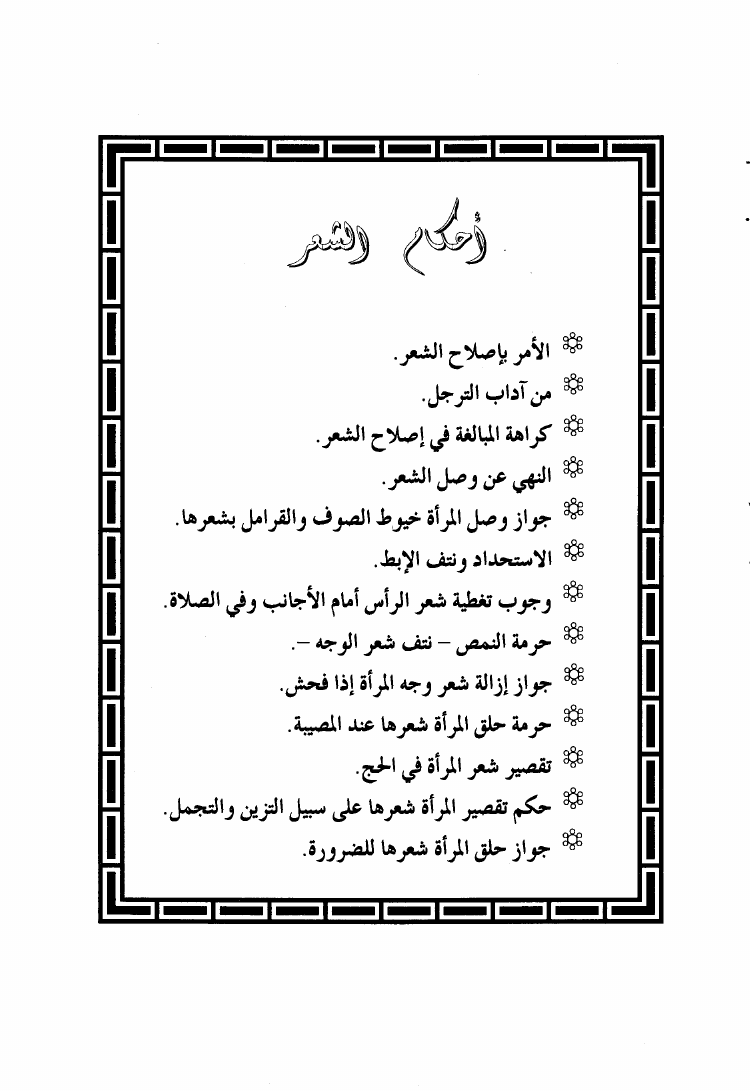 أحكام الشعر
الأمر بإصلاح الشعر.
من آداب الترجل.
كراهة المبالغة في إصلاح الشعر.
النهي عن وصل الشعر.
جواز وصل المرأة خيوط الصوف والقرامل بشعرها.
الاستحداد ونتف الإبط.
وجوب تغطية شعر الرأس أمام الأجانب وفي الصلاة.
حرمة النمص – نتف شعر الوجه –.
جواز إزالة شعر وجه المرأة إذا فحش.
حرمة حلق المرأة شعرها عند المصيبة.
تقصير شعر المرأة في الحج.
حكم تقصير المرأة شعرها على سبيل التزين والتجمل.
جواز حلق المرأة شعرها للضرورة.